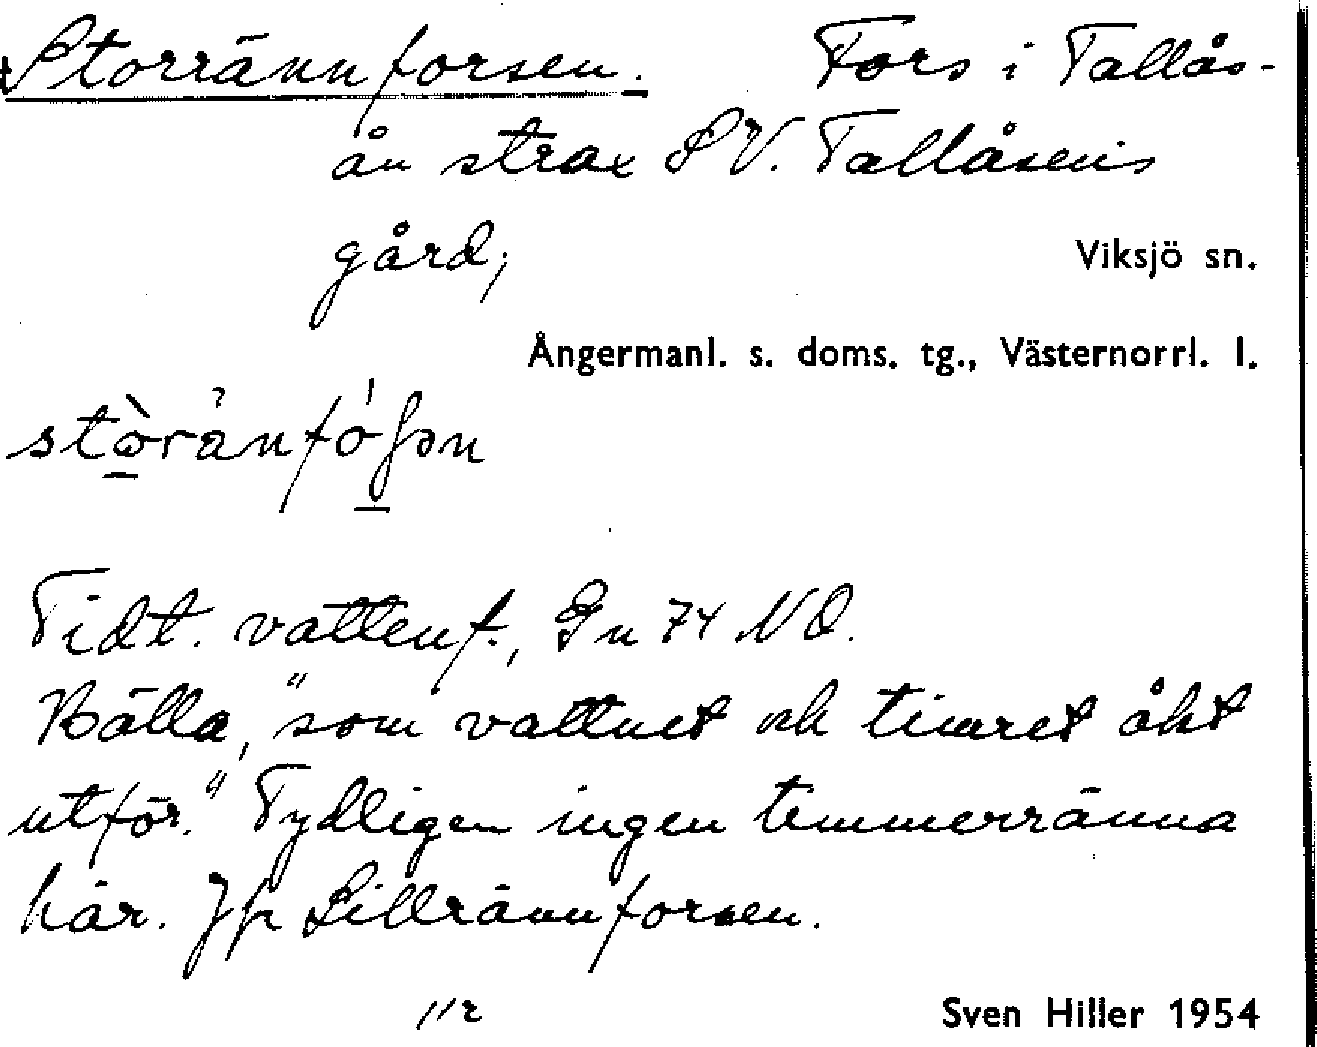 Storrännforsen. Fors i Tallås-
ån strax SV. Tallåsens
gård;
Viksjö sn.
Ångermanl. s. doms. tg., Västernorrl. l.
Tidt. vattenf., Gn 74 NO.
"som vattnet och timret åkt
utför." Tydligen ingen timmerränna
här. Jfr Lillrännforsen.
Sven Hiller 1954